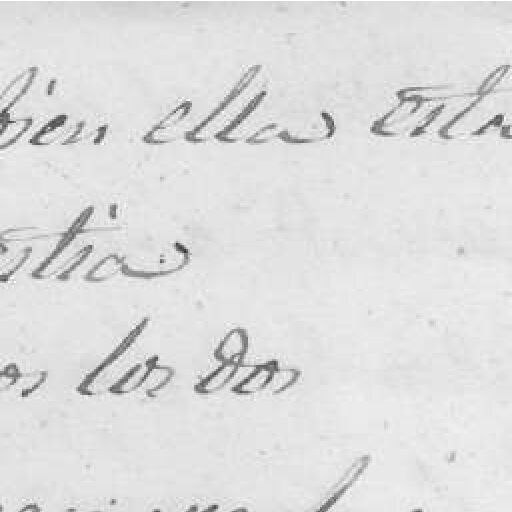 bien ella esta
estia
os los dos